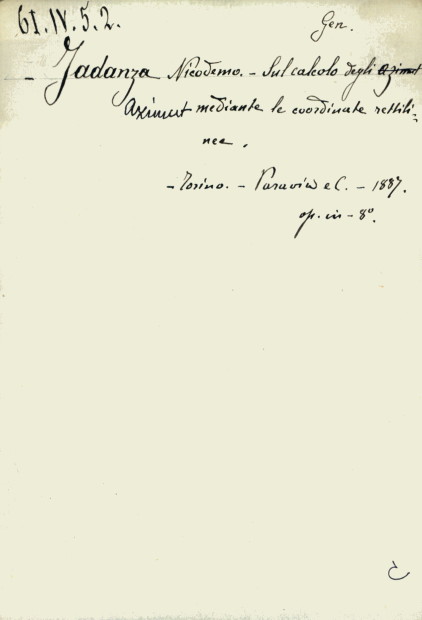 61.IV.5.2.
Gen.
- Jadanza Nicodemo. - Sul calcolo degli azimut
Azimut mediante le coordinate rettili-
nee.
- Torino. - Paravia e C. - 1887.
op. in - 8°.